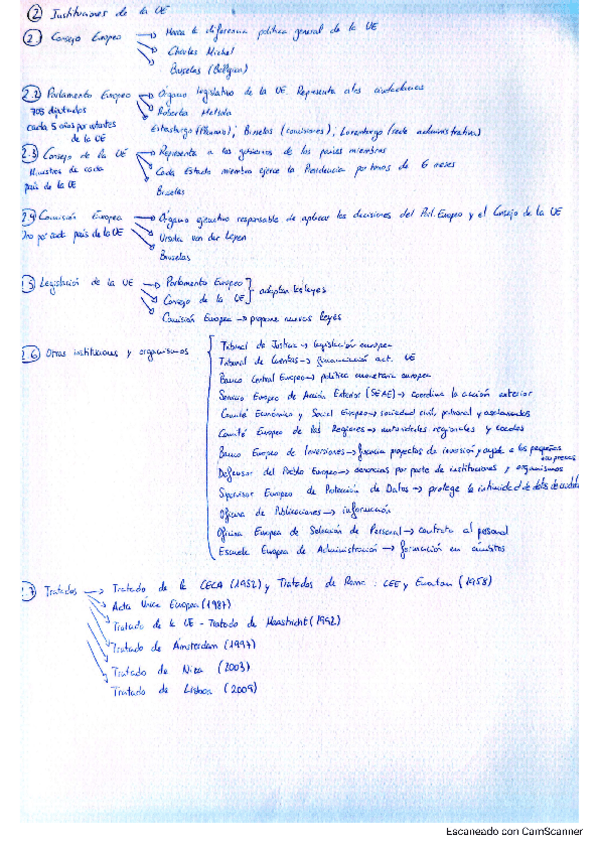 ② Instituciones de la UE
2.1 Consejo Europeo → Marca la diferencia política general de la UE
→ Charles Michel
→ Bruselas (Bélgica)
2.2 Parlamento Europeo → Órgano legislativo de la UE. Representa a los ciudadanos
705 diputados → Roberta Metsola
cada 5 años por votantes de la UE
Estrasburgo (Plenario), Bruselas (comisiones), Luxemburgo (sede administrativa)
2.3 Consejo de la UE → Representa a los gobiernos de los países miembros
Ministros de cada país de la UE → Cada Estado miembro ejerce la Presidencia por turnos de 6 meses
Bruselas
2.4 Comisión Europea → Órgano ejecutivo responsable de aplicar las decisiones del Parl. Europeo y el Consejo de la UE
Uno por cada país de la UE → Ursula von der Leyen
Bruselas
2.5 Legislación de la UE → Parlamento Europeo
→ Consejo de la UE } adoptan las leyes
→ Comisión Europea → propone nuevas leyes
2.6 Otras instituciones y organismos
Tribunal de Justicia → legislación europea
Tribunal de Cuentas → financiación act. UE
Banco Central Europeo → política monetaria europea
Servicio Europeo de Acción Exterior (SEAE) → coordina la acción exterior
Comité Económico y Social Europeo → sociedad civil, patronal y asalariados
Comité Europeo de las Regiones → autoridades regionales y locales
Banco Europeo de Inversiones → financia proyectos de inversión y ayuda a las pequeñas empresas
Defensor del Pueblo Europeo → denuncias por parte de instituciones y organismos
Supervisor Europeo de Protección de Datos → protege la intimidad de datos de
Oficina de Publicaciones → información
Oficina Europea de Selección de Personal → contrata al personal
Escuela Europea de Administración → formación en ámbitos
2.7 Tratados → Tratado de la CECA (1952) y Tratados de Roma: CEE y Euratom (1958)
→ Acta Única Europea (1987)
→ Tratado de la UE - Tratado de Maastricht (1992)
→ Tratado de Ámsterdam (1997)
→ Tratado de Niza (2003)
→ Tratado de Lisboa (2009)
Escaneado con CamScanner